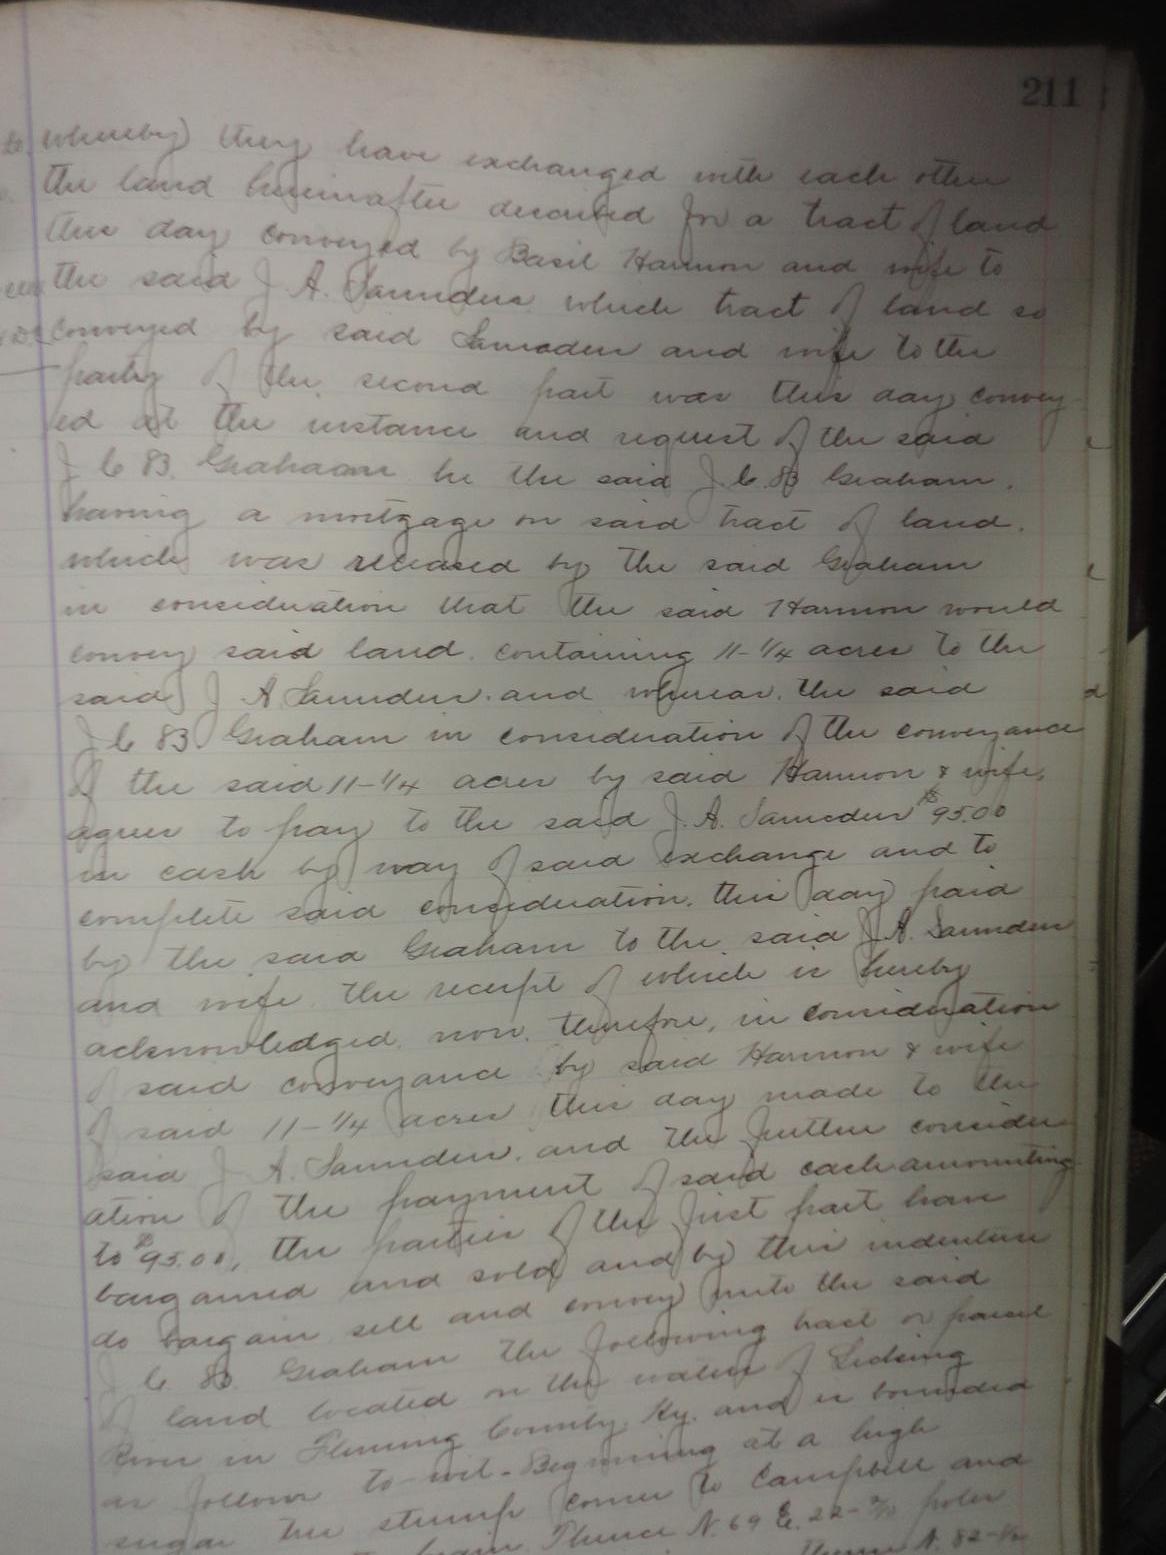 211
whereby they have exchanged with each other
the land hereinafter described for a tract of land
this day conveyed by Basil Harmon and wife to
the said J A. Saunders which tract of land so
conveyed by said Saunders and wife to the
party of the second part was this day convey
ed at the instance and request of the said
J C B. Graham he the said J. C. B Graham.
having a mortgage on said tract of land.
which was released by the said Graham
in consideration that the said Harmon would
convey said land. containing 11-1/4 acres to the
said J A Saunders. and whereas. the said
J C B Graham in consideration of the conveyance
of the said 11-1/4 acres by said Harmon & wife,
agrees to pay to the said J. A. Saunders $95.00
in cash by way of said exchange and to
complete said consideration. this day paid
by the said Graham to the said J A. Saunders
and wife the receipt of which is hereby
acknowledged. now. therefore, in consideration
of said conveyance by said Harmon & wife
of said 11-1/4 acres this day made to the
said J A. Saunders. and the further consider
ation of the payment of said cash amounting
to $95.00, the parties of the first part have
bargained and sold and by this indenture
do bargain sell and convey unto the said
J C. B. Graham the following tract or parcel
of land located on the waters of Licking
River in Fleming County Ky. and is bounded
as follows to-wit- Beginning at a high
sugar tree stump corner to Campbell and
Thence N. 69 E. 22- poles
Thence N. 82-1/2